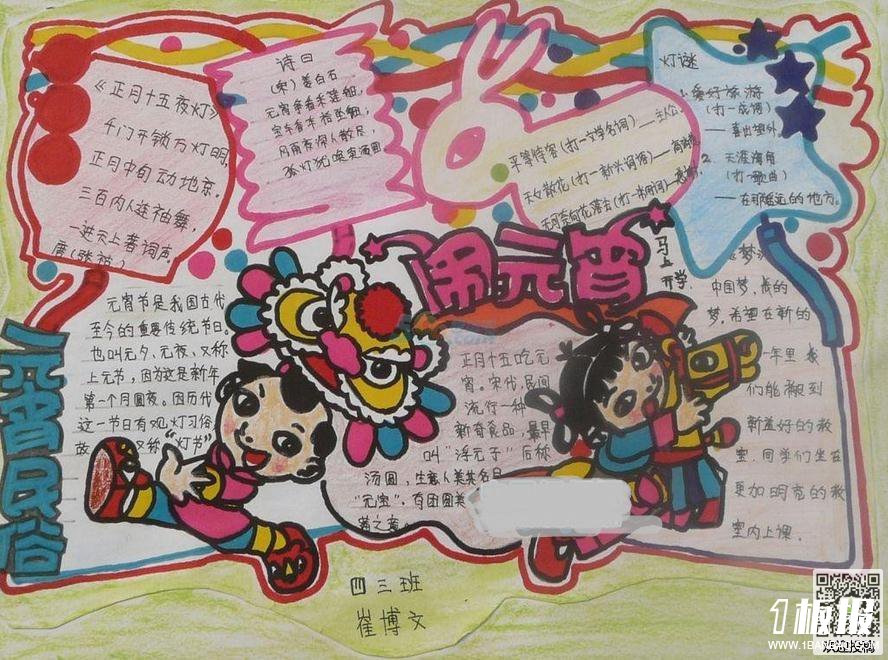 《正月十五夜灯》
千门开锁万灯明,
正月中旬动地京。
三百内人连袖舞,
一进天上著词声。
唐(张祜)
诗曰
(宋)姜白石
元宵争看采莲船,
宝车香
风雨夜深人散尽,
孤灯犹唤卖汤圆
平等待客(打一文学名词)
天女散花(打一新
灯谜
1.爱好旅游
(打一成语)
——喜出望外
2.天涯海角
(打一歌曲)
——在那遥远的地方。
闹元宵
马上开学
元宵民俗
元宵节是我国古代
至今的重要传统节日。
也叫元夕、元夜、又称
上元节,因为这是新年
第一个月圆夜。因历代
这一节日有观灯习俗,
故又称“灯节”
正月十五吃元
宵。宋代,民间
流行一种
新奇食品,最早
叫“浮元子”后称
汤圆,生意人美其名曰
“元宝”。有团圆美
满之意。
中国梦,我的
梦。希望在新的
一年里我
们能搬到
新盖好的教
室。同学们坐在
更加明亮的教
室内上课。
四三班
崔博文
1板报
WWW.1BANBAO.COM
欢迎投稿